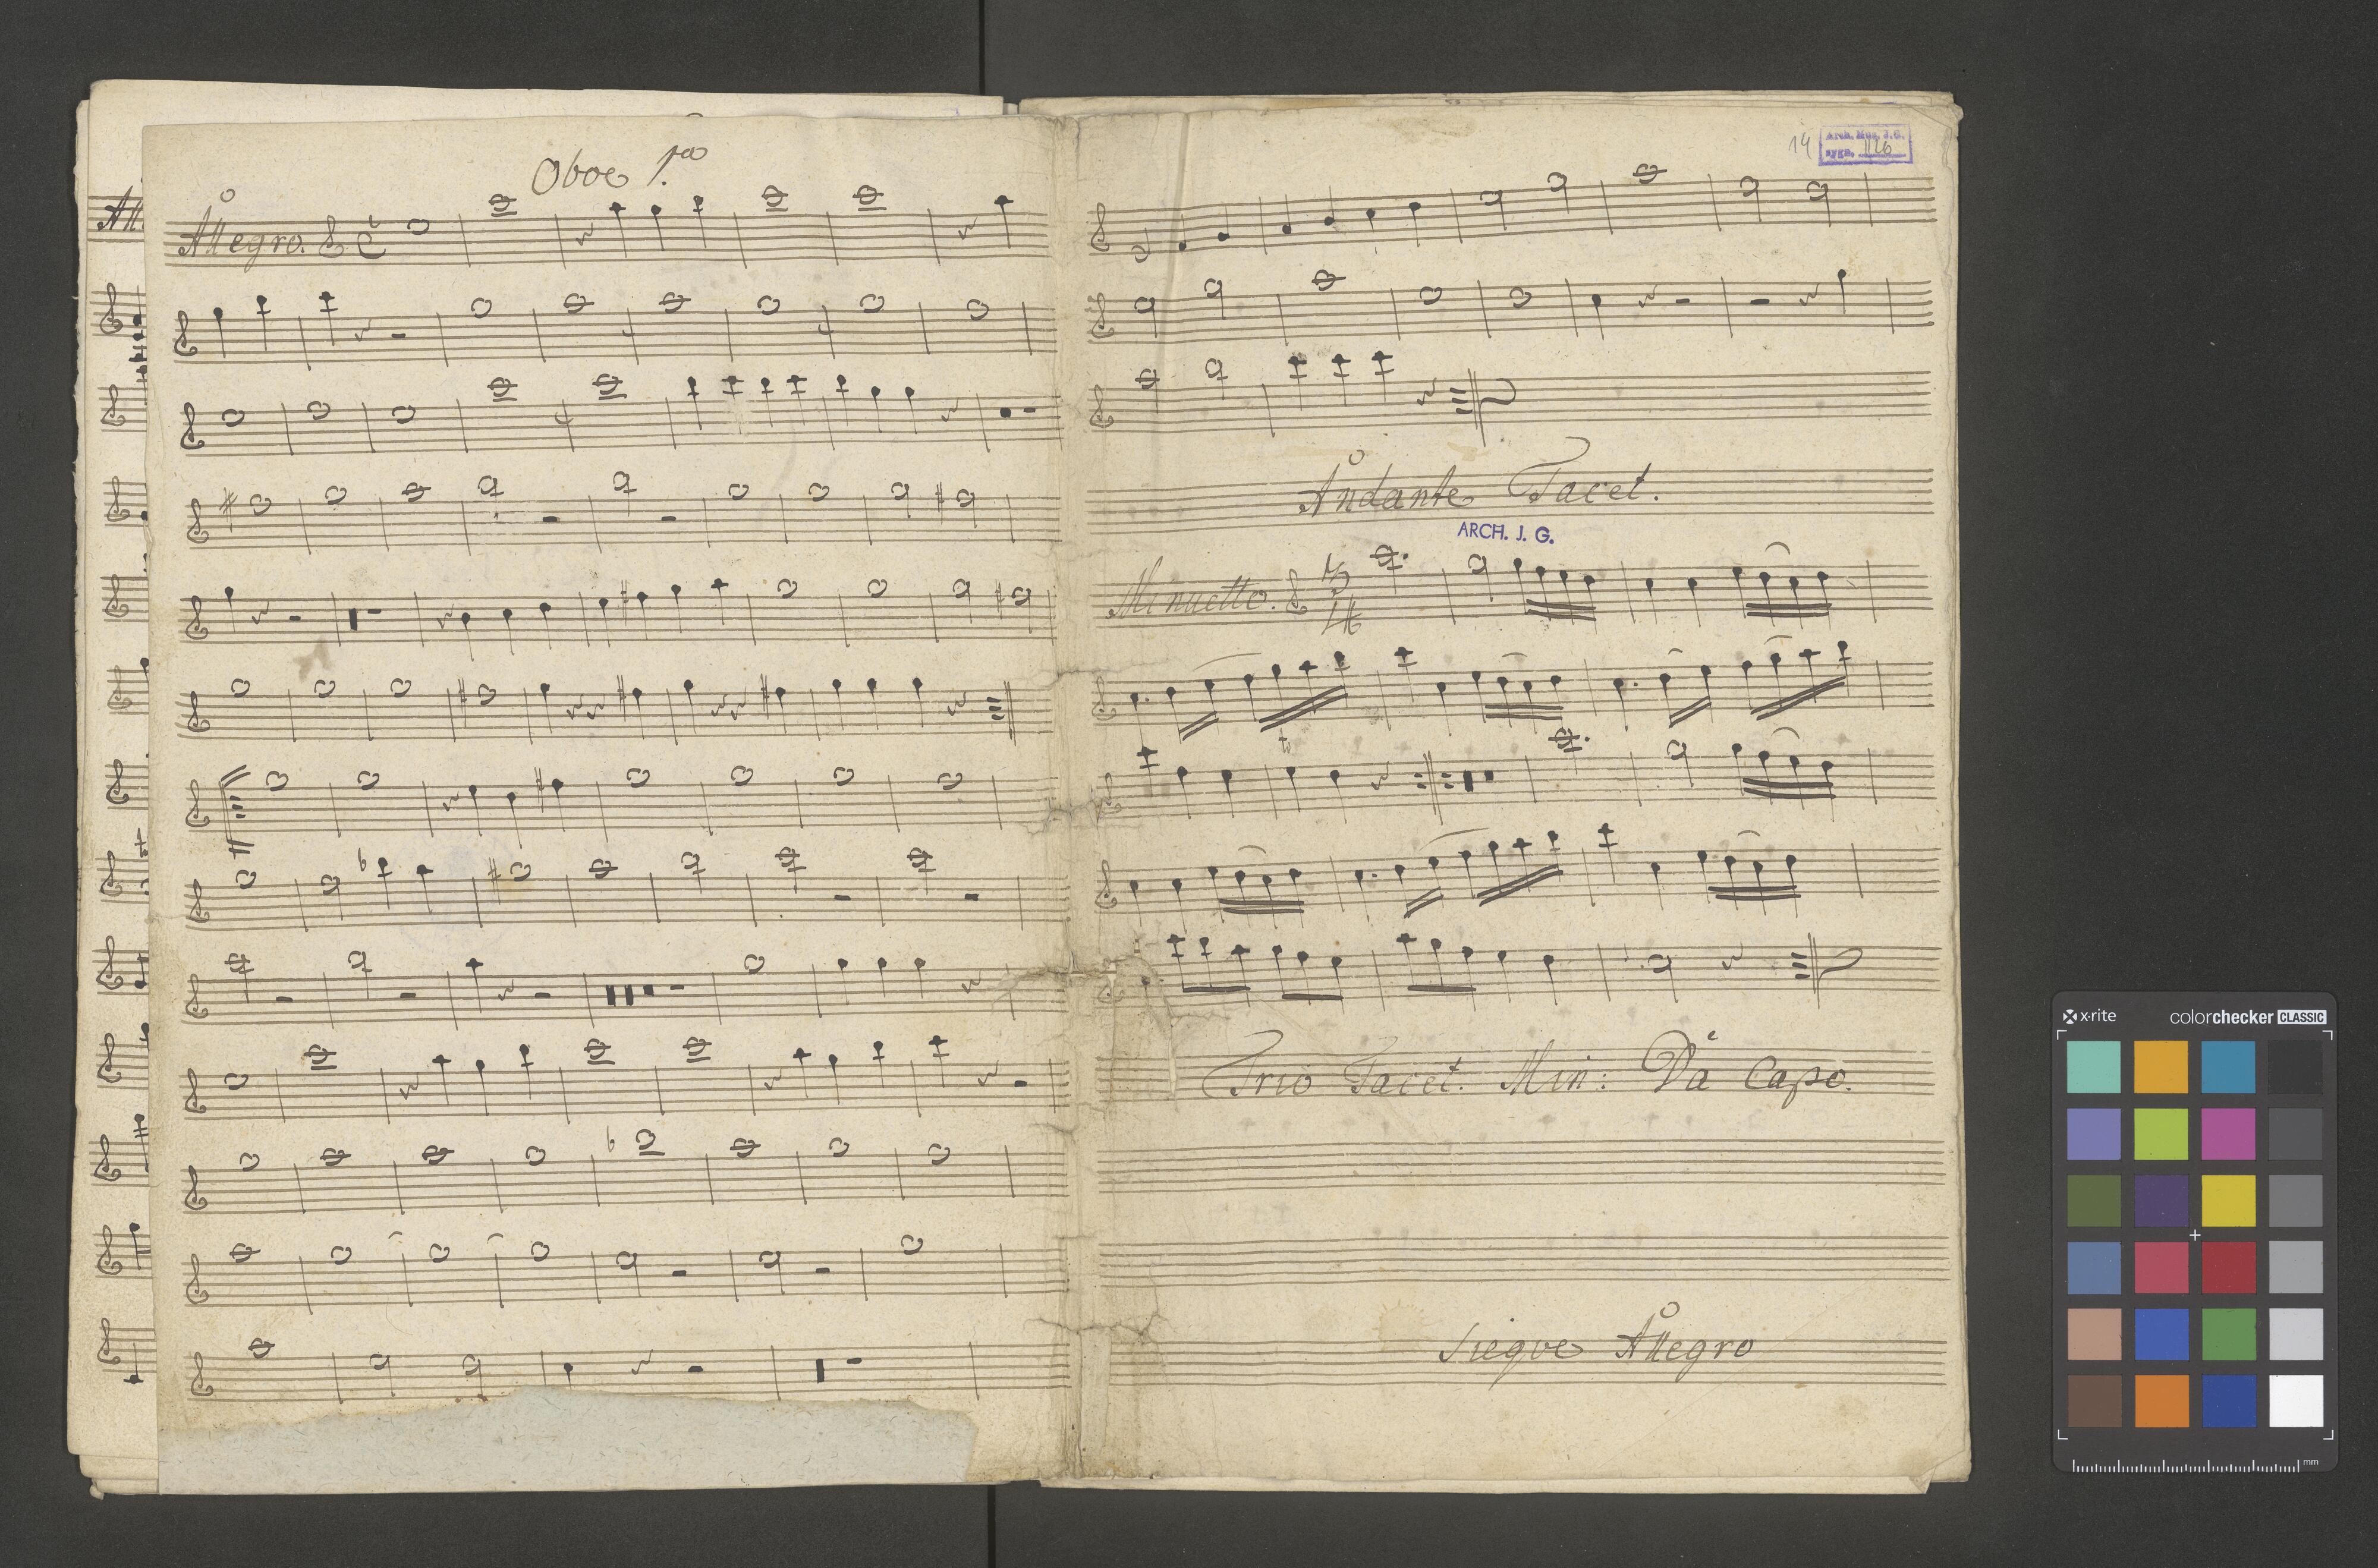 Oboe 1.mo
Allegro.
All
14
Arch. Muz. J. G.
sygn. 1126
Andante Tacet.
ARCH. J. G.
Minuetto. 3
4
Trio Tacet. Min: Da Capo.
Siegue Allegro
x-rite colorchecker CLASSIC
mm